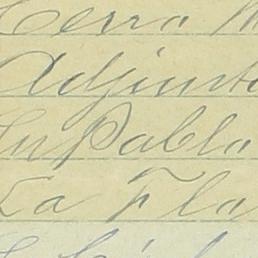 Cerro M
Adjunta
Sn Pablo
La Fla